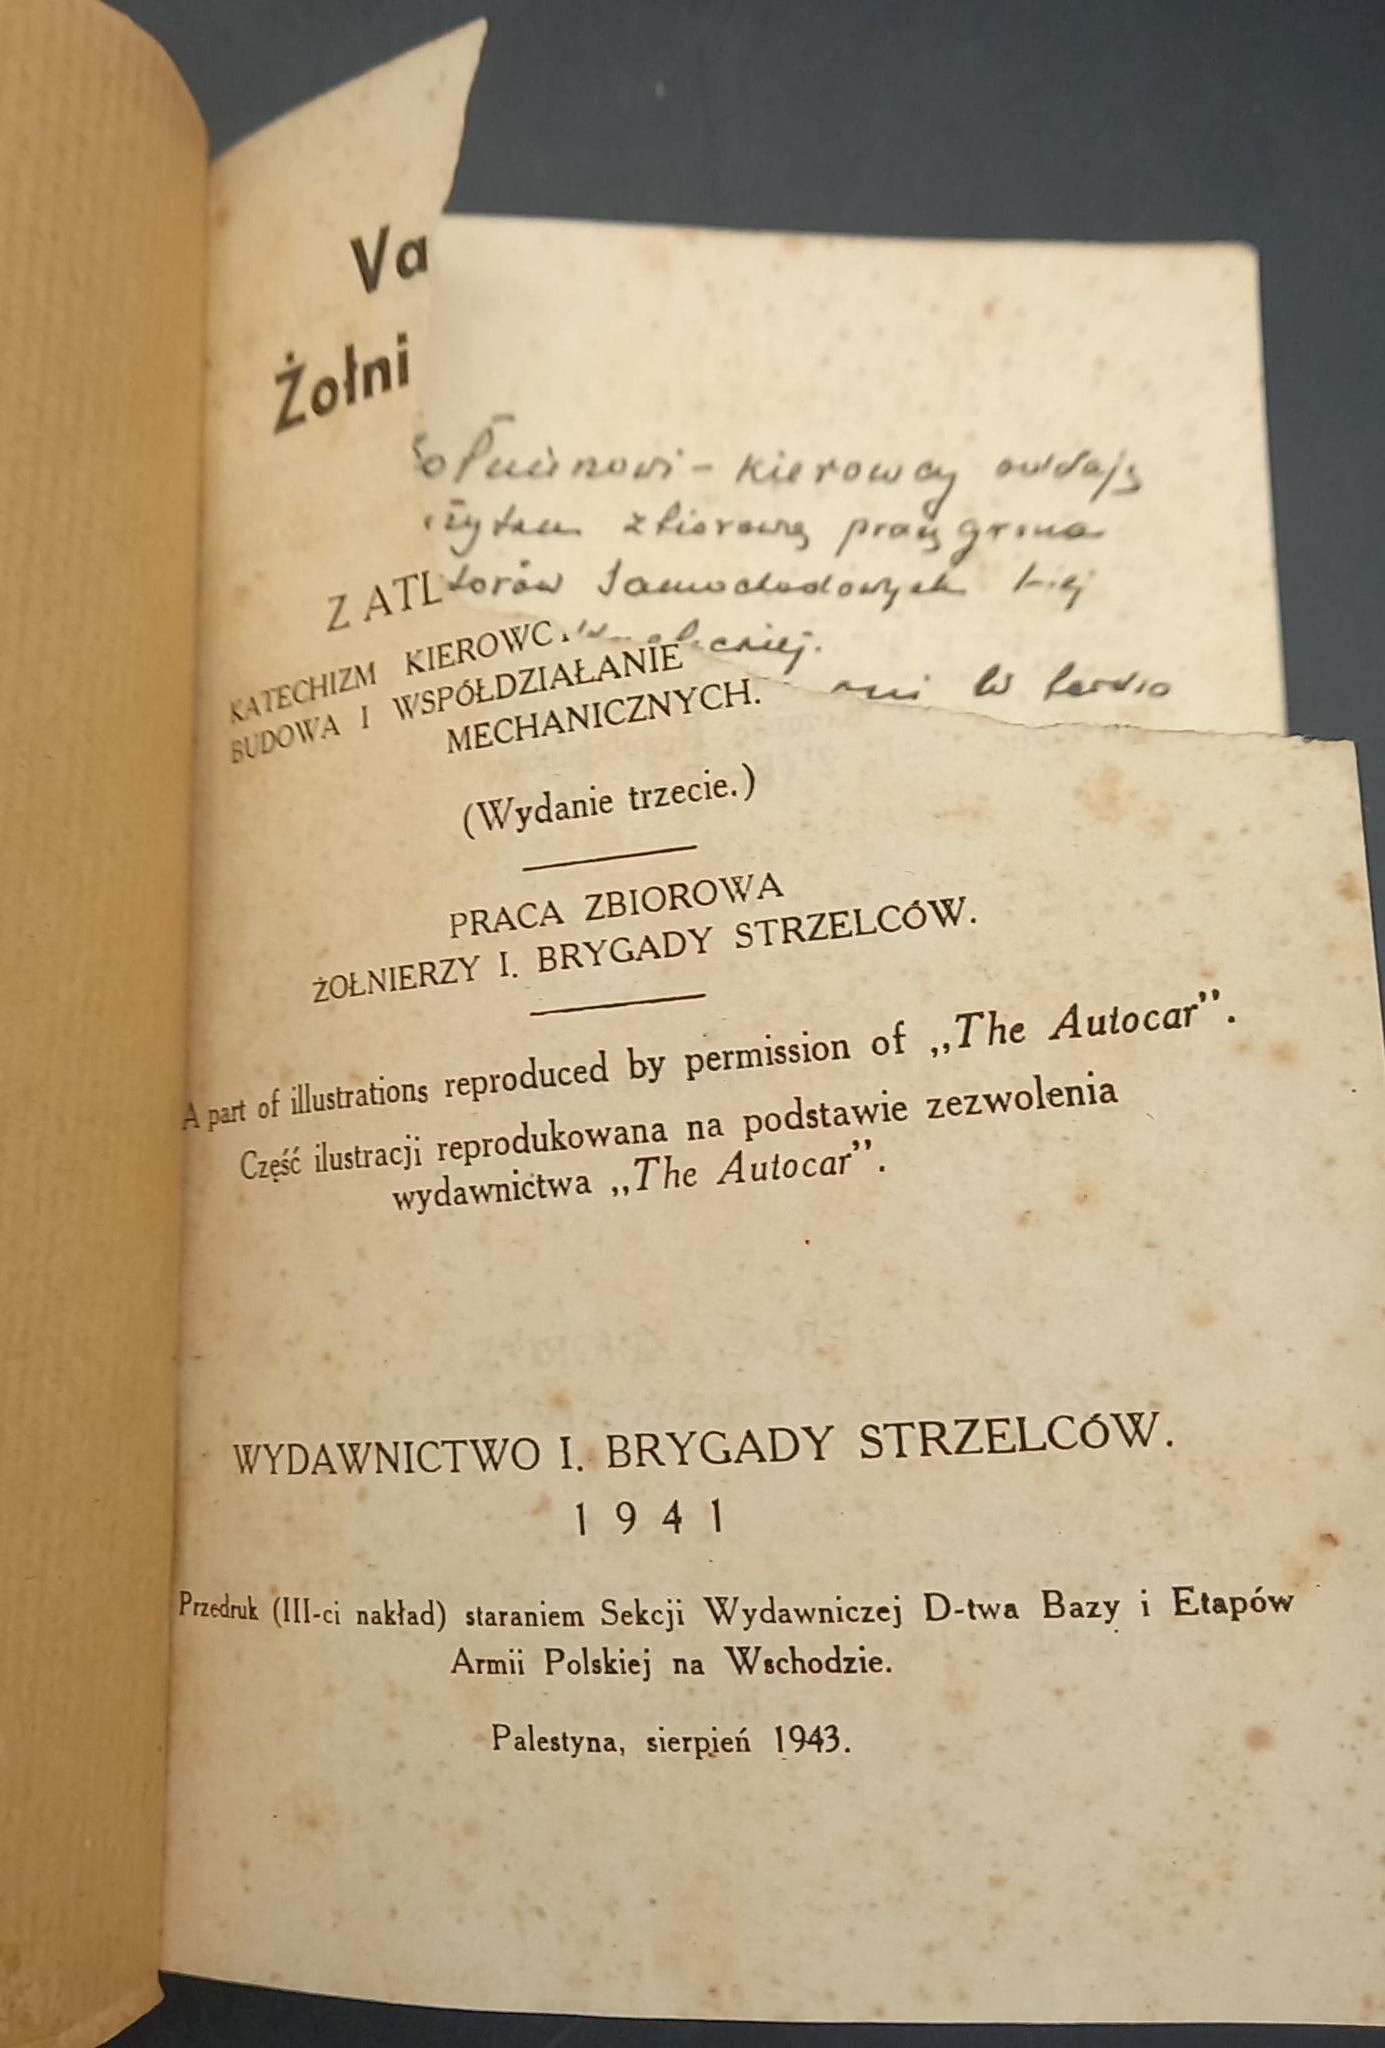 Va
Żołni
Z ATL
KATECHIZM KIEROWC
BUDOWA I WSPÓŁDZIAŁANIE
MECHANICZNYCH.
(Wydanie trzecie.)
PRACA ZBIOROWA
ŻOŁNIERZY I. BRYGADY STRZELCÓW.
A part of illustrations reproduced by permission of „The Autocar”.
Część ilustracji reprodukowana na podstawie zezwolenia
wydawnictwa „The Autocar”.
WYDAWNICTWO I. BRYGADY STRZELCÓW.
1941
Przedruk (III-ci nakład) staraniem Sekcji Wydawniczej D-twa Bazy i Etapów
Armii Polskiej na Wschodzie.
Palestyna, sierpień 1943.
ołnierzowi - kierowcy oddają
zbiorową pracę grona
torów Samochodowych